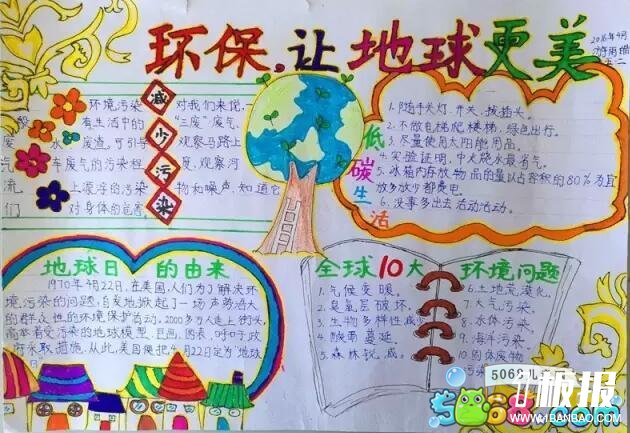 环保,让地球更美
2016年4月
五二
减少污染
环境污染对我们来说,一般
有生活中的“三废”废气、
废水、废渣,可引导观察马路上
汽车废气的污染程度,观察河
流上漂浮的污染物和噪声,知道它
们对身体的危害。
低碳生活
1.随手关灯、开关、拔插头。
2.不做电梯爬楼梯,绿色出行。
3.尽量使用太阳能用品。
4.实验证明,中火烧水最省气。
5.冰箱内存放物品的量以占容积的80%为宜
放多放少都费电。
6.没事多出去活动活动。
地球日的由来
1970年4月22日,在美国,人们为了解决环
境污染的问题,自发地掀起了一场声势浩大
的群众性的环境保护运动。2000多万人走上街头,
高举着受污染的地球模型、巨画、图表,呼吁政
府采取措施。从此,美国便把4月22日定为“地球
日”
全球10大环境问题
1.气候变暖。
2.臭氧层破坏。
3.生物多样性减少
4.酸雨蔓延
5.森林锐减。
6.土地荒漠化。
7.大气污染。
8.水体污染
9.海洋污染
10.固体废物
污染
板报
WWW.1BANBAO.COM